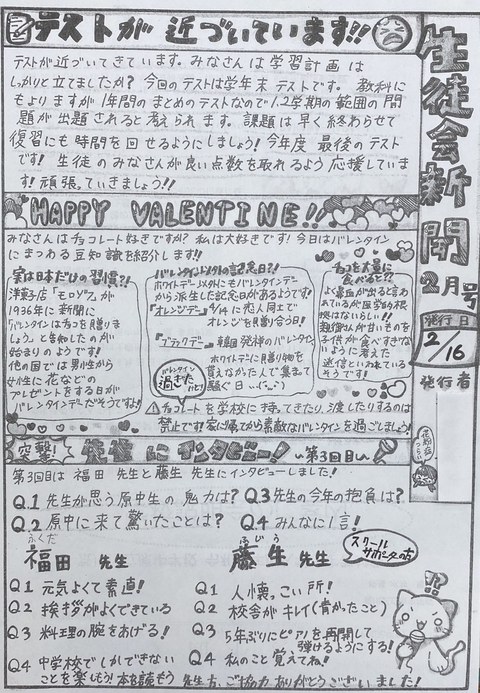 生徒会新聞
2月号
発行日
2/16
発行者
花粉症つらい
テストが近づいています!!
テストが近づいてきています。みなさんは学習計画は
しっかりと立てましたか?今回のテストは学年末テストです。教科に
もよりますが1年間のまとめのテストなので1.2学期の範囲の問
題が出題されると考えられます。課題は早く終わらせて
復習にも時間を回せるようにしましょう!今年度最後のテスト
です!生徒のみなさんが良い点数を取れるよう応援していま
す!頑張っていきましょう!!
HAPPY VALENTINE!!
みなさんはチョコレート好きですか?私は大好きです!今日はバレンタイン
にまつわる豆知識を紹介します!!
実は日本だけの習慣?!
洋菓子店「モロゾフ」が
1936年に新聞に
「バレンタインはチョコを贈りま
しょう」と告知したのが
始まりのようです!
他の国では男性から
女性に花などの
プレゼントをする日が
バレンタインデーだそうですよ!
バレンタイン以外の記念日?!
ホワイトデー以外にもバレンタインデー
から派生した記念日があるようです!
『オレンジデー』4/14に恋人同士で
オレンジを贈り合う日!
『ブラックデー』韓国発祥のバレンタイン、
ホワイトデーに贈り物を
貰えなかった人で集まって
騒ぐ日
バレンタイン
過ぎた
けど!
チョコを大量に
食べると??
よく鼻血が出ると言わ
れているが医学的根
拠はないらしい!!
親御さんが甘いものを
子供が食べすぎな
いように考えた
迷信といわれている
そうです!
⚠チョコレートを学校に持ってきたり、渡したりするのは
禁止です!家に帰ってから素敵なバレンタインを過ごしましょう!
突撃!先生にインタビュー!〜第3回目〜
第3回目は福田先生と藤生先生にインタビューしました!
Q.1 先生が思う原中生の魅力は?
Q.3 先生の今年の抱負は?
Q.2 原中に来て驚いたことは?
Q.4 みんなに1言!
ふくだ
福田 先生
Q1 元気よくて素直!
Q2 挨拶がよくできている
Q3 料理の腕をあげる!
Q4 中学校でしかできない
ことを楽しもう!本を読もう
ふじう
藤生 先生
スクール
サポーターの方
Q1 人懐っこい所!
Q2 校舎がキレイ(昔かったこと)
Q3 5年ぶりにピアノを再開して
弾けるようにする!
Q4 私のこと覚えてね!
先生方、ご協力ありがとうございました!
!?